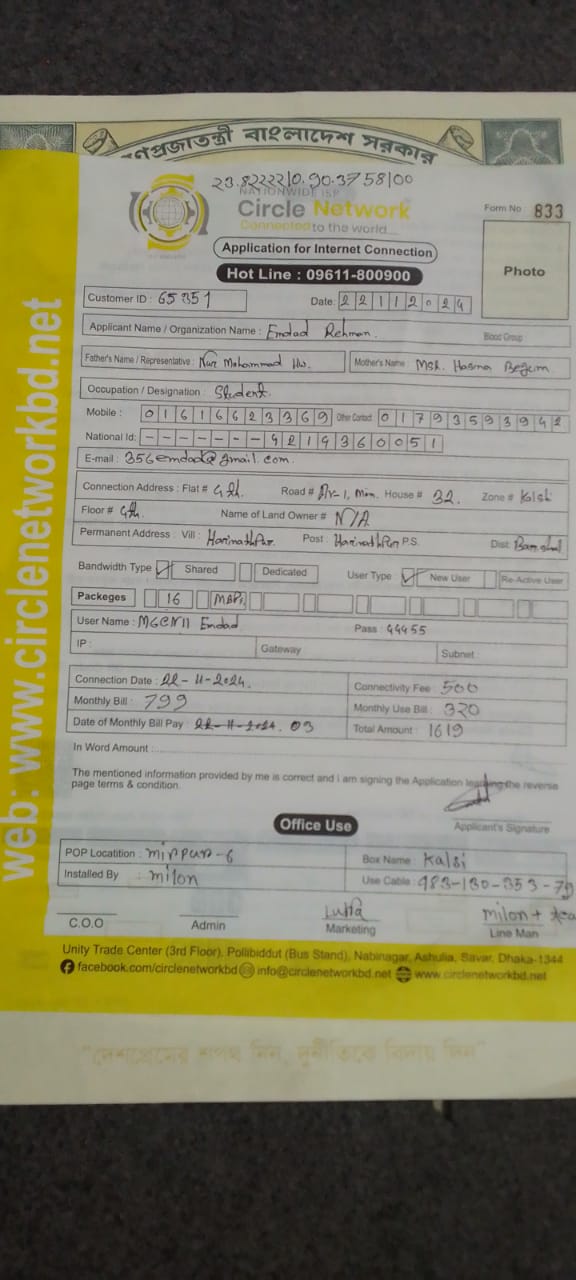 গণপ্রজাতন্ত্রী বাংলাদেশ সরকার
23.82222|0.90.3758|00
NATIONWIDE ISP
Circle Network
Connected to the world....
Form No 833
Application for Internet Connection
Hot Line : 09611-800900
Photo
Customer ID : 65351 Date: 22112024
Applicant Name / Organization Name : Emdad Rehman Blood Group
Father's Name / Representative : Nur Mohammad Mother's Name : Mst. Hasma Begum
Occupation / Designation : Student
Mobile : 01616623369 Other Contact 01793593942
National Id: - - - - - - - 4219360051
E-mail : 356emdad@gmail.com
Connection Address : Flat # 4th Road # House # 32. Zone # Kalsi
Floor # 4th. Name of Land Owner # N/A
Permanent Address : Vill : Harinathpur Post : Harinathpur P.S. Dist:
Bandwidth Type Shared Dedicated User Type New User Re-Active User
Packeges 16 Mbps
User Name : MGCN11 Emdad Pass : 44455
IP : Gateway Subnet :
Connection Date : 22-11-2024. Connectivity Fee : 500
Monthly Bill : 799 Monthly Use Bill : 320
Date of Monthly Bill Pay : 22-11-2024. 03 Total Amount : 1619
In Word Amount :
The mentioned information provided by me is correct and i am signing the Application the reverse
page terms & condition.
Applicant's Signature
Office Use
POP Locatition : mirpur-6 Box Name Kalsi
Installed By : milon Use Cable : 983-130-353-79
Lutfa milon +
C.O.O Admin Marketing Line Man
Unity Trade Center (3rd Floor), Pollibiddut (Bus Stand), Nabinagar, Ashulia, Savar, Dhaka-1344
facebook.com/circlenetworkbd info@circlenetworkbd.net www.circlenetworkbd.net
web: www.circlenetworkbd.net
"দেশপ্রেমের শপথ নিন, দুর্নীতিকে বিদায় দিন"